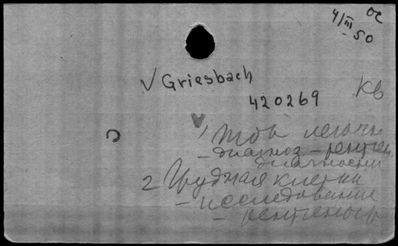 4/III 50
√ Griesbach
420269
Кв
1 Тбс легочн
- диагноз - рентген
диагностики
2 Грудная клетка
- исследование
- рентгеногр